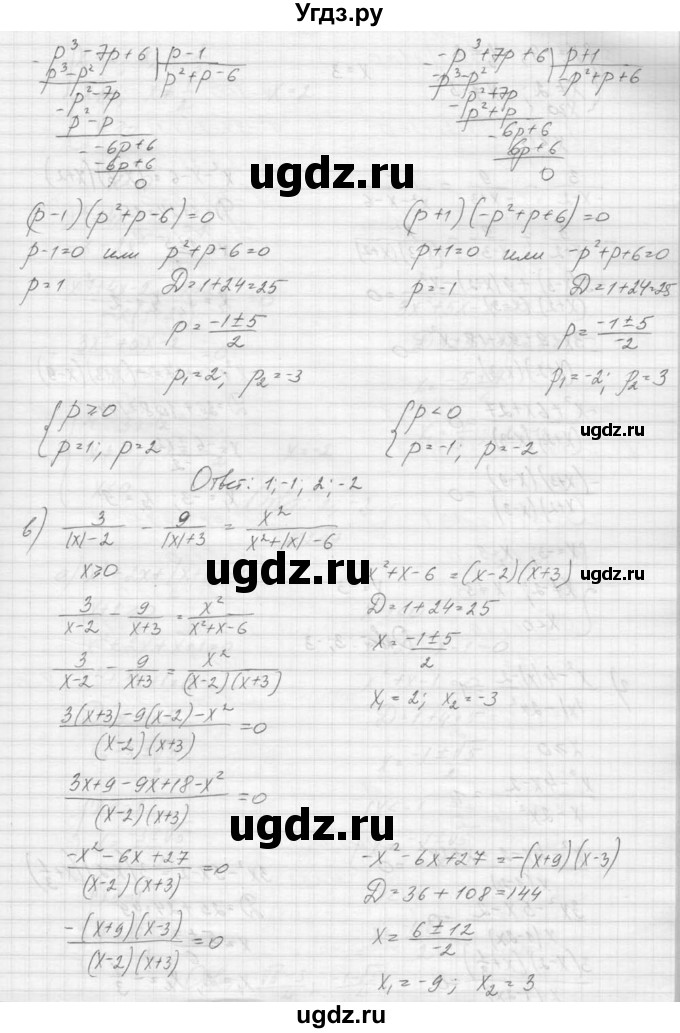 Угдз.ру
- p³ - 7p + 6 | p - 1
p³ - p² | p² + p - 6
p² - 7p
- p² - p
- -6p + 6
-6p + 6
0
- -p³ + 7p + 6 | p + 1
-p³ - p² | -p² + p + 6
p² + 7p
- p² + p
- 6p + 6
6p + 6
0
ugdz.ru
(p-1)(p²+p-6)=0
p-1=0 или p²+p-6=0
p=1 D=1+24=25
p = (-1±5)/2
p₁=2; p₂=-3
{ p≥0
p=1; p=2
(p+1)(-p²+p+6)=0
p+1=0 или -p²+p+6=0
p=-1 D=1+24=25
p = (-1±5)/-2
p₁=-2; p₂=3
{ p<0
p=-1; p=-2
ugdz.ru
Ответ: 1; -1; 2; -2
в) 3/(|x|-2) - 9/(|x|+3) = x²/(x²+|x|-6)
ugdz.ru
ugdz.ru
x≥0
3/(x-2) - 9/(x+3) = x²/(x²+x-6)
3/(x-2) - 9/(x+3) = x²/((x-2)(x+3))
(3(x+3)-9(x-2)-x²)/((x-2)(x+3)) = 0
(3x+9-9x+18-x²)/((x-2)(x+3)) = 0
x²+x-6 = (x-2)(x+3)
D=1+24=25
x = (-1±5)/2
x₁=2; x₂=-3
ugdz.ru
(-x²-6x+27)/((x-2)(x+3)) = 0
(-(x+9)(x-3))/((x-2)(x+3)) = 0
-x²-6x+27 = -(x+9)(x-3)
D=36+108=144
x = (6±12)/-2
x₁=-9; x₂=3
ugdz.ru